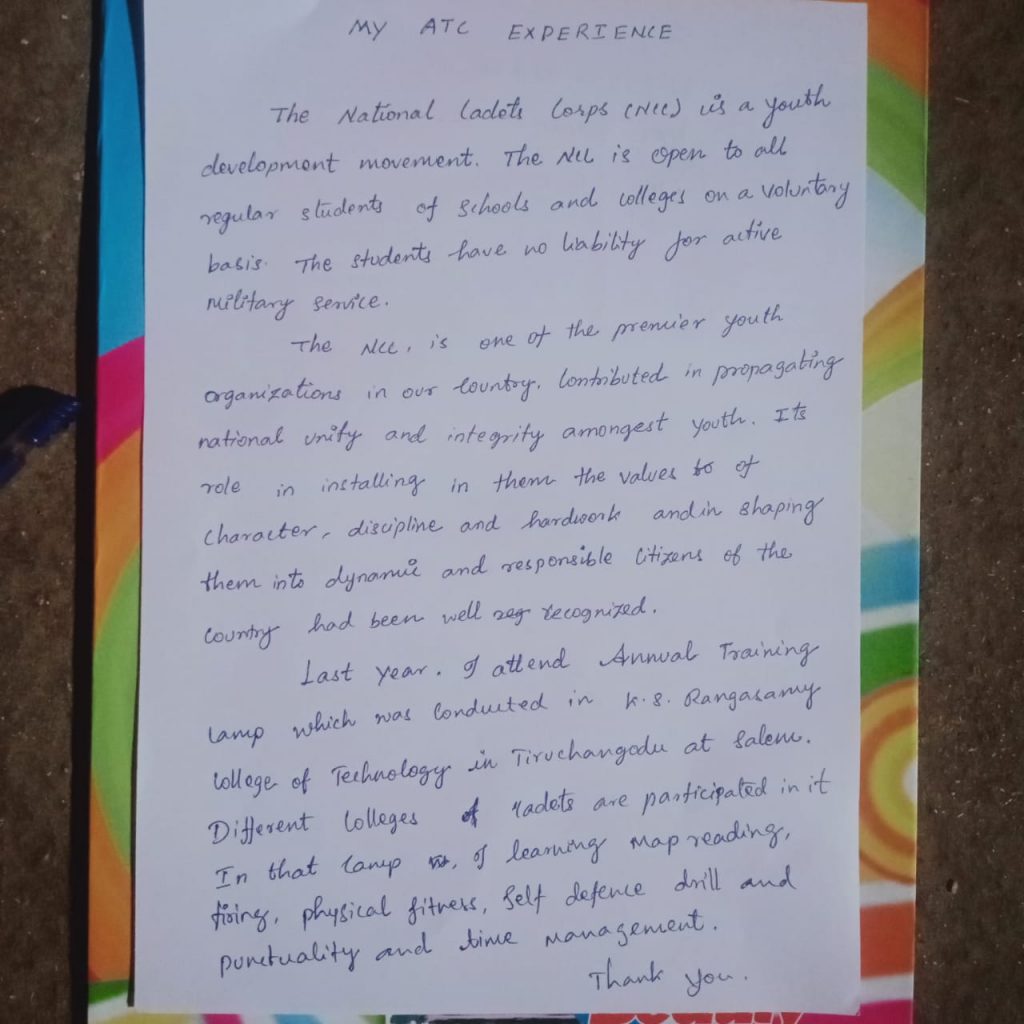 MY ATC EXPERIENCE
The National Cadets Corps (NCC) is a youth
development movement. The NCC is open to all
regular students of schools and colleges on a voluntary
basis. The students have no liability for active
military service.
The NCC, is one of the premier youth
organizations in our country. Contributed in propagating
national unify and integrity amongest youth. Its
role in installing in them the values of
character, discipline and hardwork and in shaping
them into dynamic and responsible citizens of the
country had been well recognized.
Last year. I attend Annual Training
camp which was conducted in K.S. Rangasamy
College of Technology in Tiruchangodu at Salem.
Different Colleges of cadets are participated in it
In that camp, I learning map reading,
firing, physical fitness, self defence drill and
punctuality and time management.
Thank you.